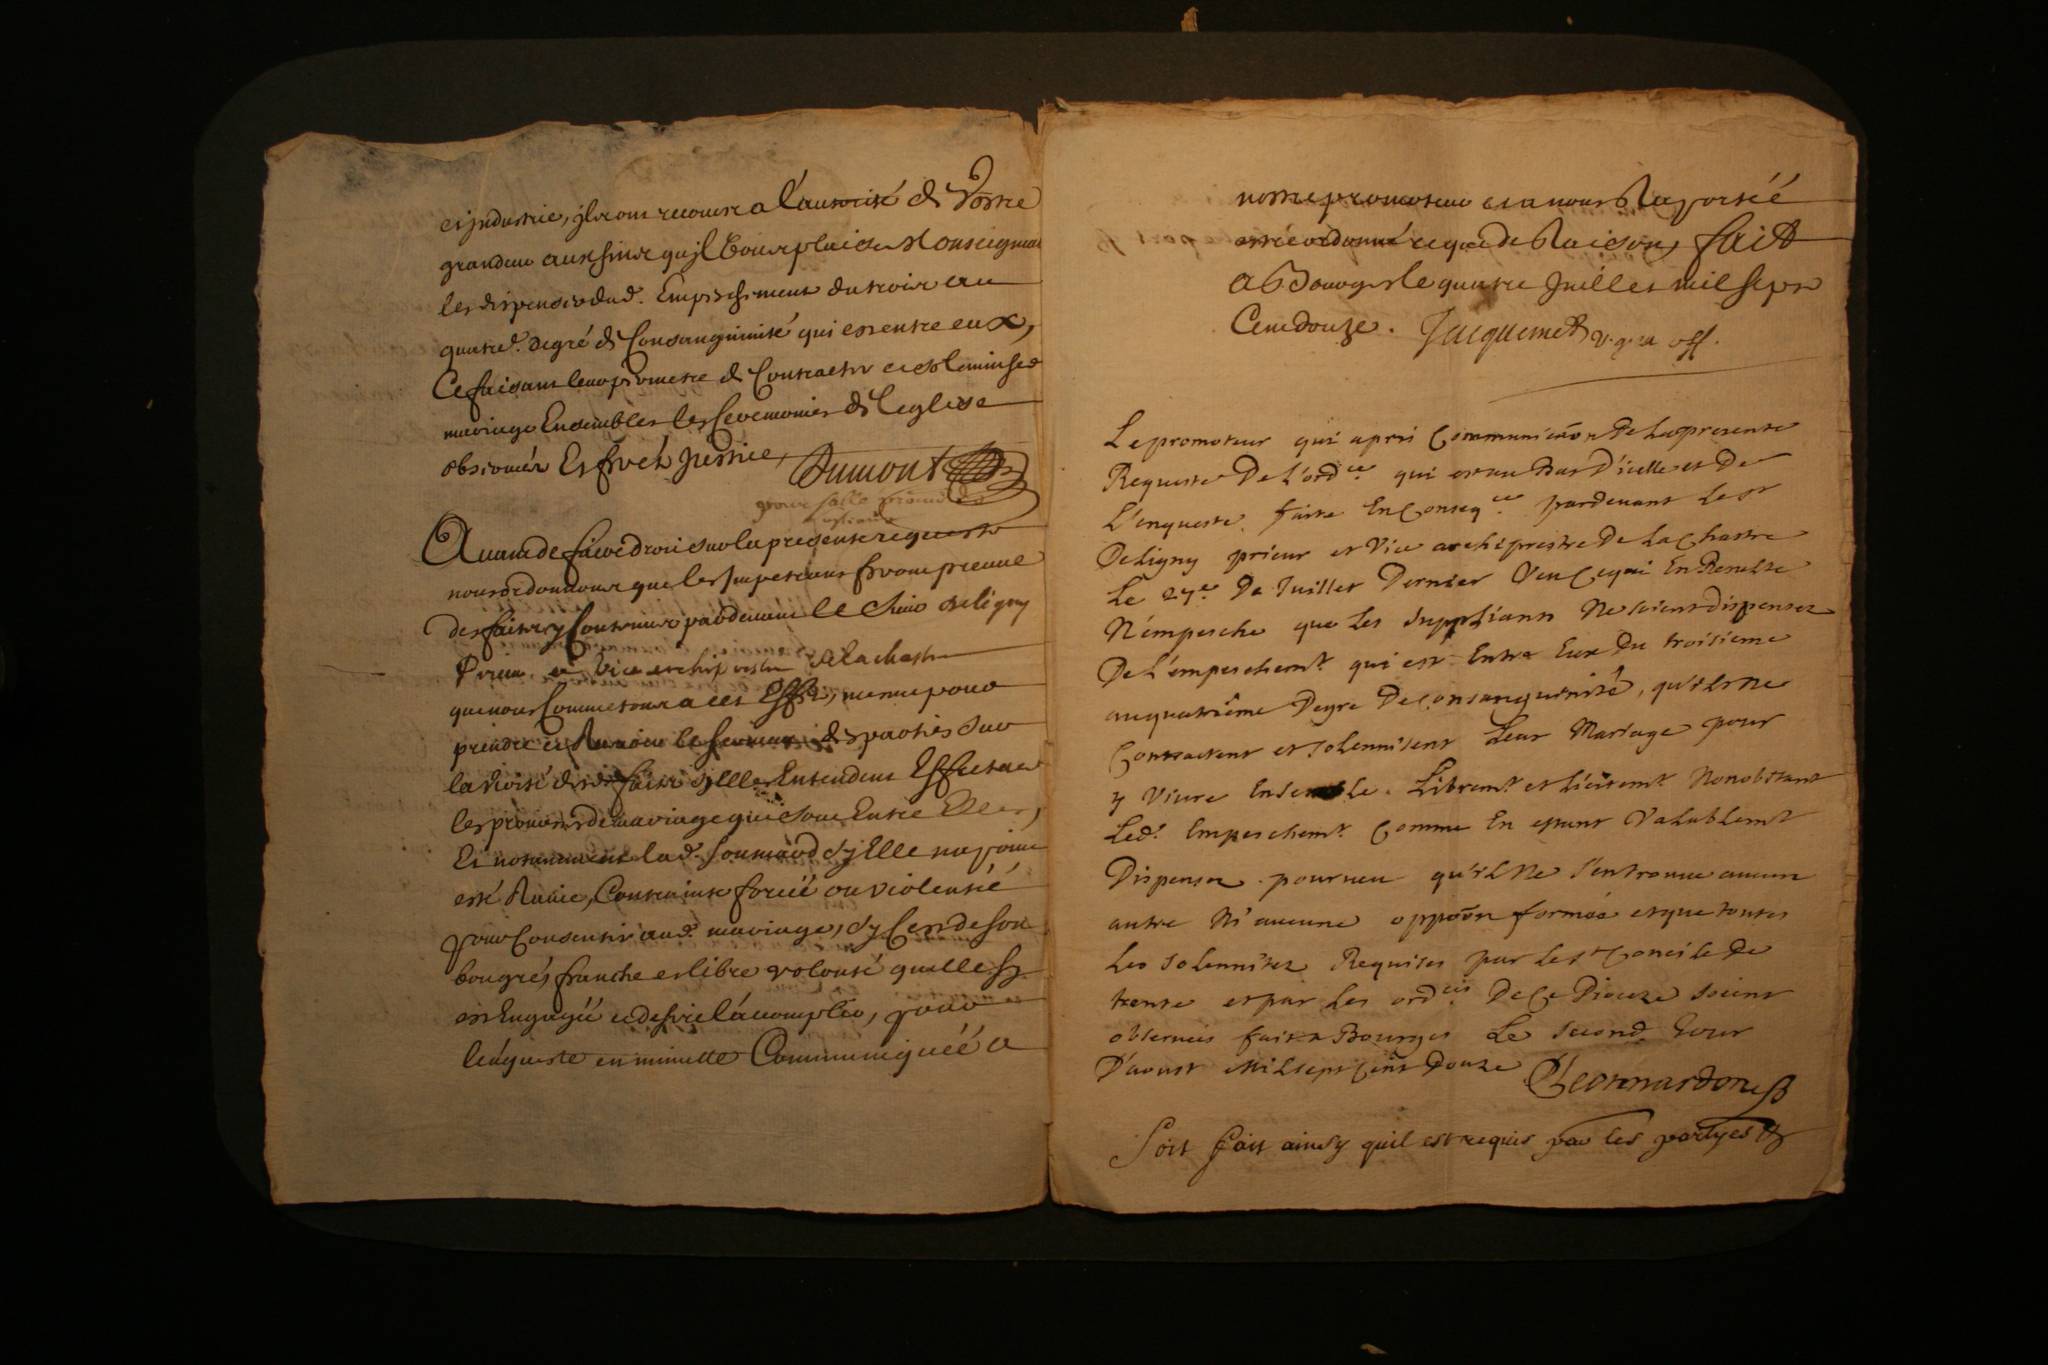 et industrie, ils ont recours a l'autorité de Vostre
grandeur aux fins qu'il vous plaise Monseigneur
les dispenser dud. Empeschement du trois au
quatre. degré de Consanguinité qui est entre eux,
Ce faisant leur permettre de Contracter et solemniser
mariage Ensembles les Ceremonies de l'eglise
observées Et ferez Justice,
Dumont
Avant de faire droit sur la presente requeste
nous ordonnons que les Impetrans feront preuve
des faits y Contenus pardevant le Sieur de ligny
Prieur et Vice archiprestre de la chastre
que nous Commetons a cet Effet, mesme pour
prendre et Recevoir le serment des parties sur
la verité desd. faits sy Elles Entendent Effectuer
les promesses de mariage qui sont Entre Elles,
Et notamment lad. sy Elle na point
esté Ravie, Contrainte forcéé ou violentéé
pour Consentir aud. mariage, sy C'est de son
bon gré, franche et libre volonté quelle sy
est Engagéé et desire l'acomplir, pour
l'enqueste en minutte Communiquéé a
nostre promoteur et a nous Raportéé
estre ordonné ce que de Raison, fait
a Bourges le quatre Juillet mil sept
Cent douze. Jacquemet v. g. et off.
Le promoteur qui a pris Communicaôn De la presente
Requeste De L'ord.ce qui est au Bas D'icelle et De
L'enqueste faite En Conseq.ce pardevant le Sr
De Ligny prieur et Vice archiprestre De La Chastre
Le 27.e De Juillet Dernier Veu Ce qui En Resulte
N'empesche que Les Supplians Ne soient dispensez
De L'empeschemt. qui est Entre Eux Du troisieme
au quatriême Degre De Consanguinité, qu'ils ne
Contractent et solennisent Leur Mariage pour
y Vivre Ensemble. Libremt. et Licitemt. Nonobstant
Led. Empeschemt. Comme En estant Valablemt
Dispensez. pourveu qu'il Ne s'en trouve aucun
autre N'y aucune oppôôn formée et que toutes
Les solennitez Requises par Le St Concile de
trente et par Les ord.ces De Ce Dioceze soient
observées fait a Bourges Le second. Jour
D'aoust Mil sept Cent Douze
Soit fait ainsy quil est requis par les partyes